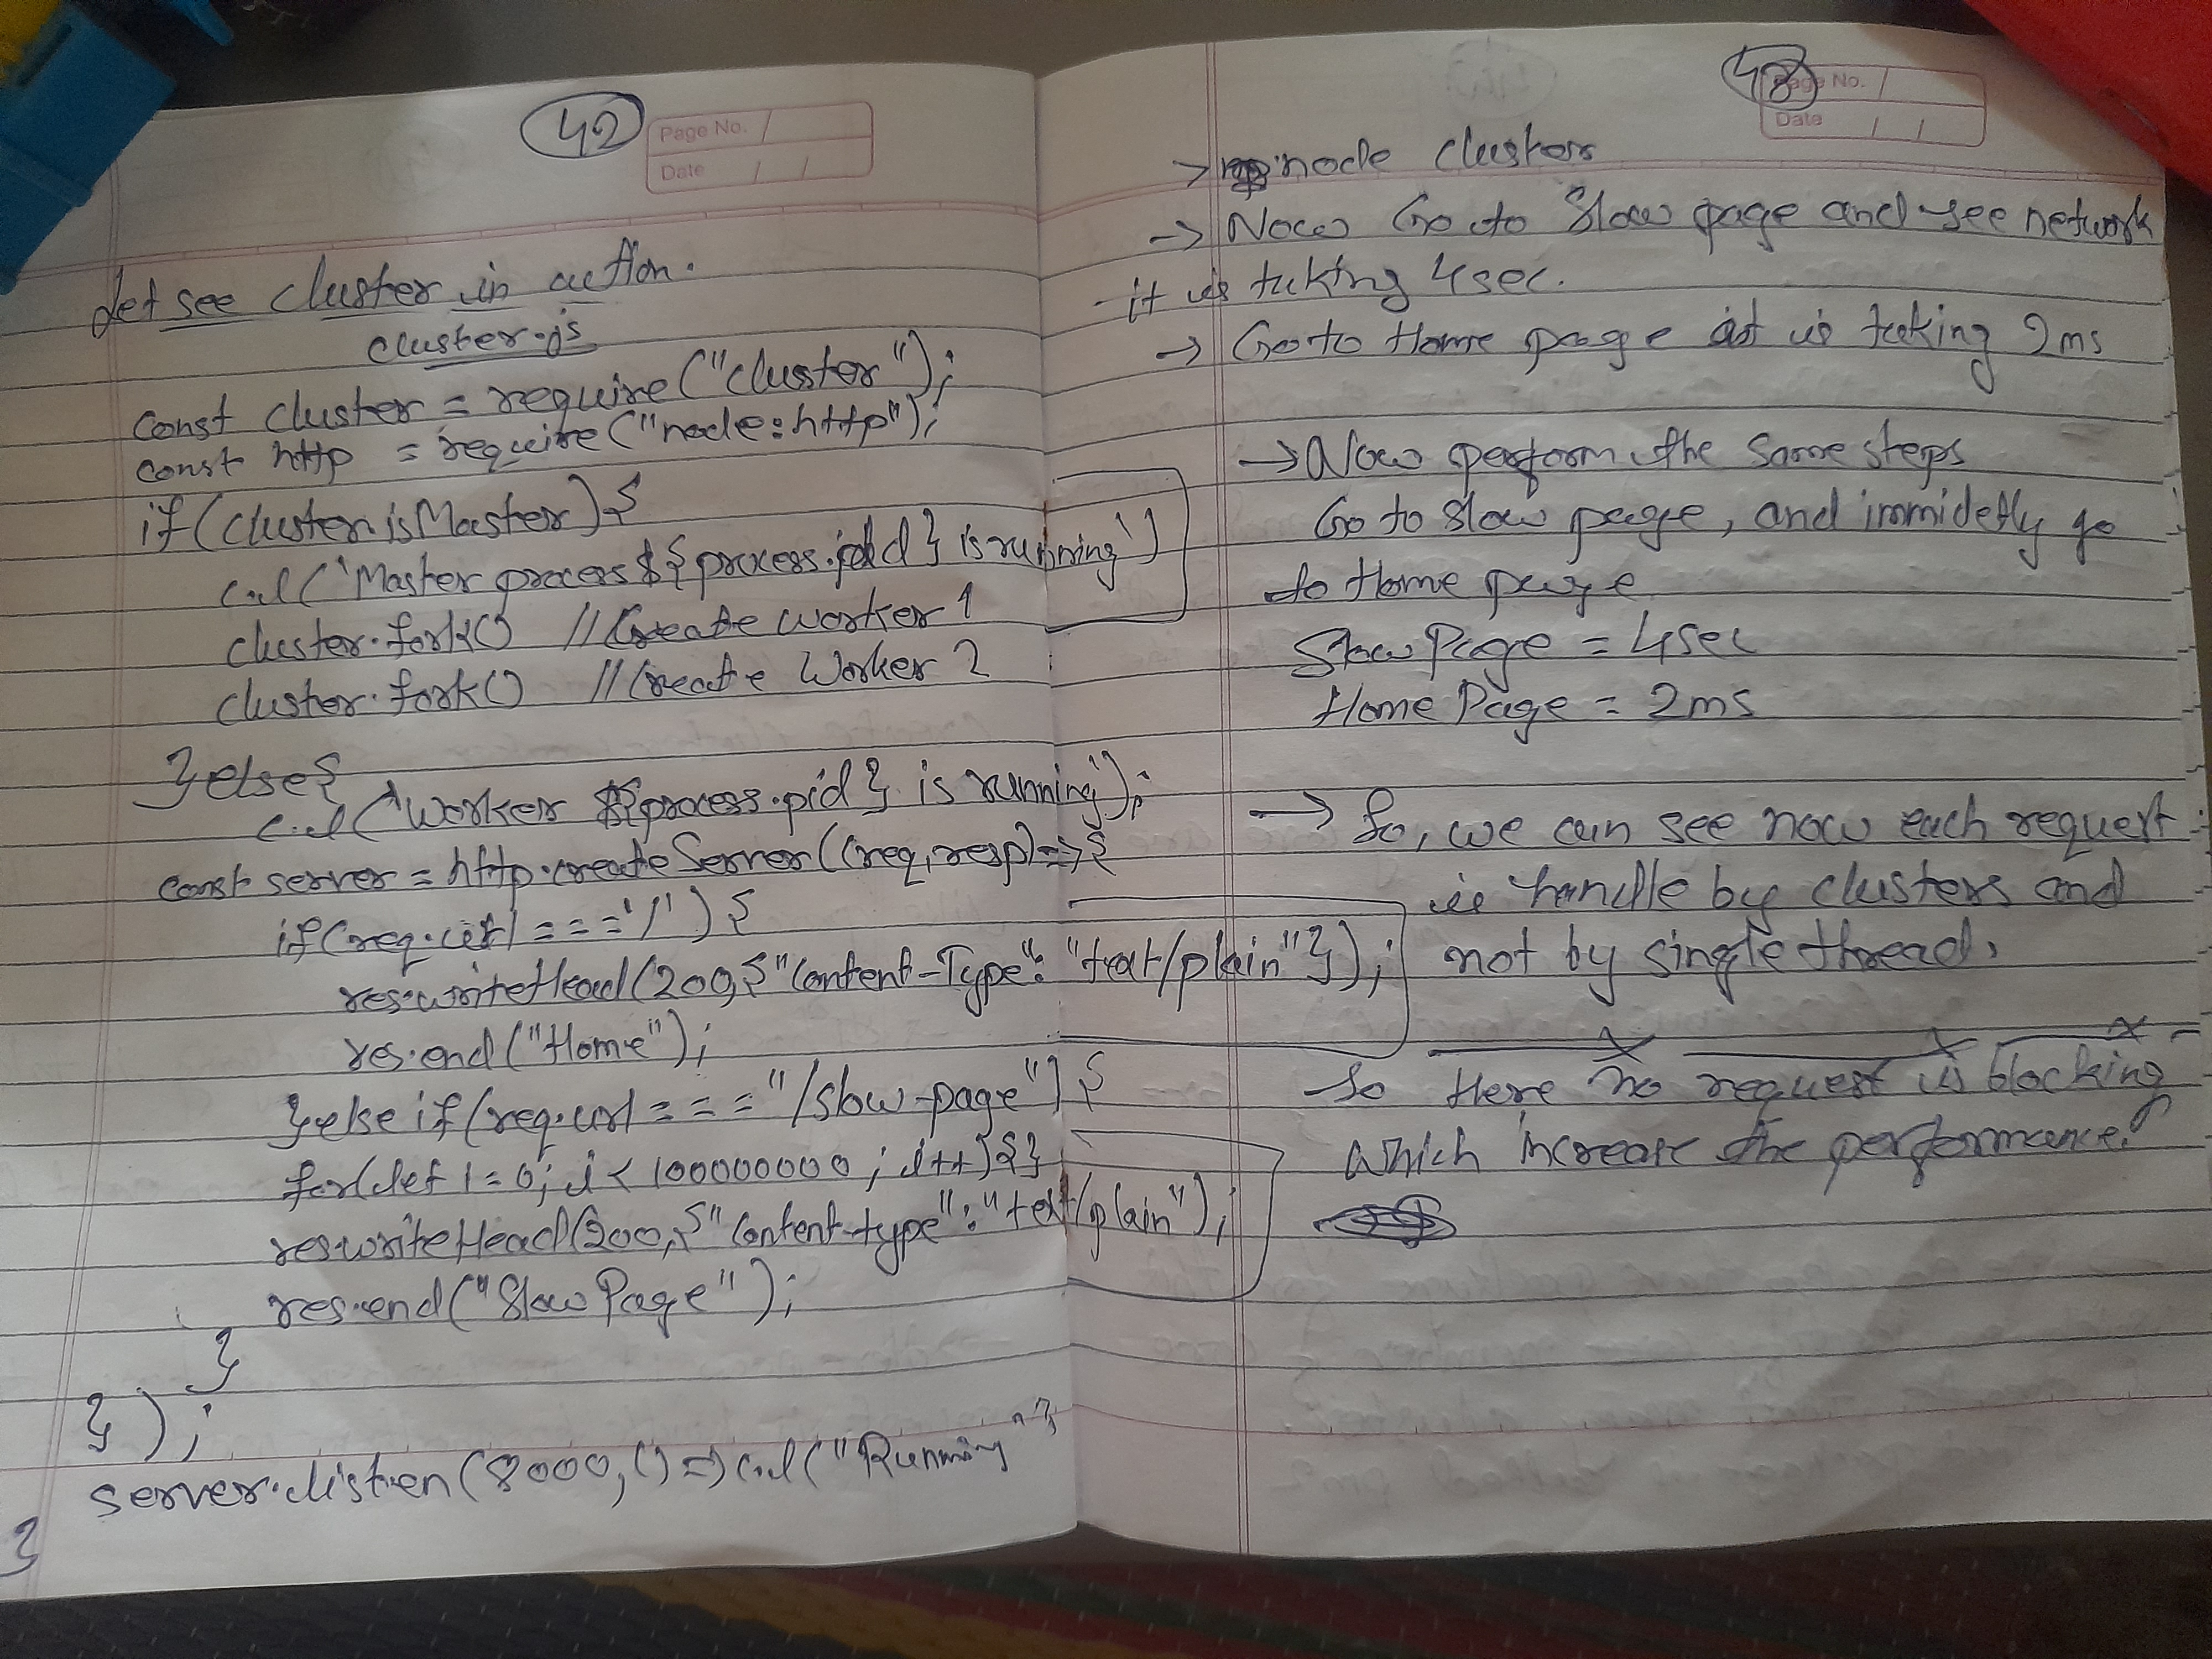 42
Page No.
Date
Let see cluster in action.
cluster.js
const cluster = require("cluster");
const http = require("node:http");
if(cluster.isMaster){
c.l(`Master process ${process.pid} is running`)
cluster.fork() //Create worker 1
cluster.fork() //Create Worker 2
}else{
c.l(`Worker ${process.pid} is running`);
const server = http.createServer((req,resp)=>{
if(req.url === '/'){
res.writeHead(200,{"Content-Type": "text/plain"});
res.end("Home");
}else if(req.url === "/slow-page"){
for(let i=0; i<100000000; i++){}
res.writeHead(200,{"Content-type":"text/plain");
res.end("Slow Page");
}
});
server.listen(8000,()=>c.l("Running"}
}
Page No.
Date
> node cluster
→ Now Go to Slow page and see network
it is taking 4sec.
→ Go to Home page it is taking 2ms
→ Now perform the same steps
Go to slow page, and immidetly go
to Home page
Slow Page = 4sec
Home Page = 2ms
→ So, we can see now each request
is handle by clusters and
not by single thread.
So Here no request is blocking
which increase the performance.